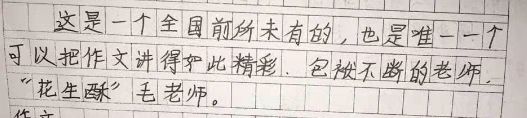 这是一个全国前所未有的，也是唯一一个
可以把作文讲得如此精彩．包袱不断的老师．
“花生酥”毛老师。
作文